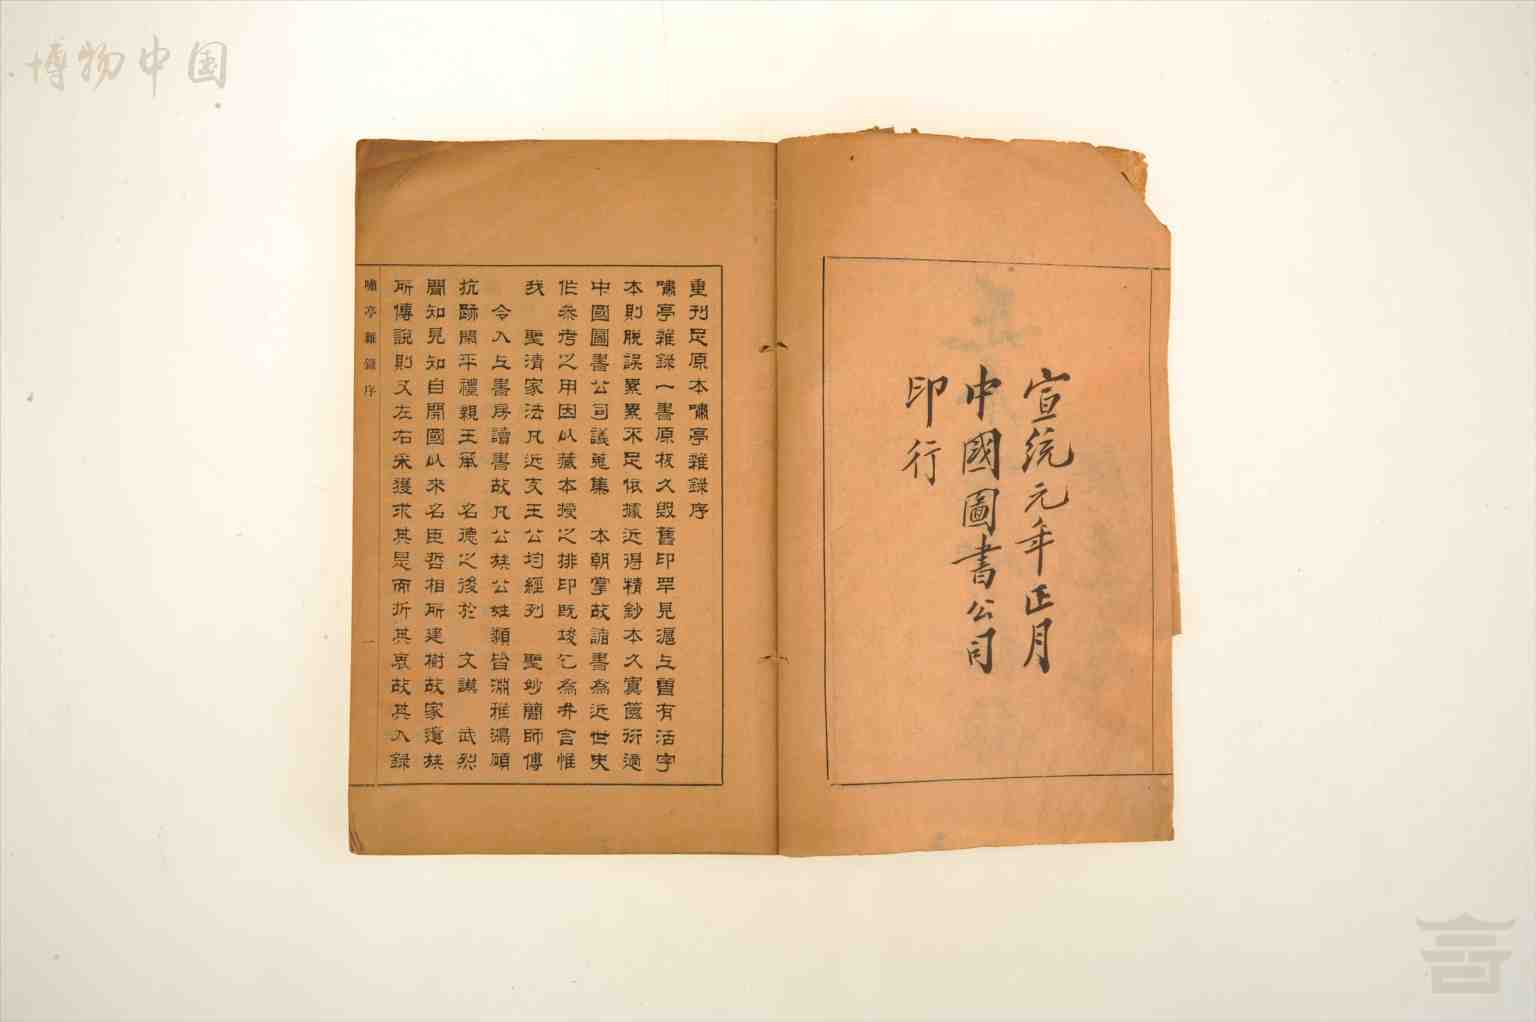 博物中国
宣統元年正月
中國圖書公司
印行
重刊足原本嘯亭雜錄序
嘯亭雜錄一書原板久毀舊印罕見滬上曾有活字
本則脫誤累累不足依據近得精鈔本久寘篋衍適
中國圖書公司議蒐集 本朝掌故諸書為近世史
作參考之用因以藏本授之排印既竣乞為弁言惟
我 聖清家法凡近支王公均經列 聖妙簡師傅
令入上書房讀書故凡公族公姓類皆淵雅鴻碩
抗跡閒平禮親王承 名德之後於 文謨 武烈
聞知見知自開國以來名臣哲相所建樹故家遺族
所傳說則又左右采獲求其是而折其衷故其入錄
嘯亭雜錄序
一